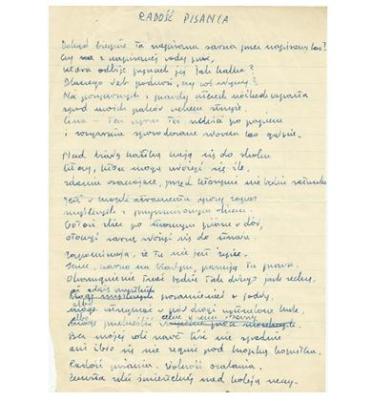 RADOŚĆ PISANIA
Dokąd biegnie ta napisana sarna przez napisany las?
Czy z napisanej wody pić,
która odbije pyszczek jej jak kalka?
Dlaczego łeb podnosi, czy coś słyszy?
Na pożyczonych z prawdy nóżkach wsparta
spod moich palców uchem strzyże.
Cisza – ten wyraz też szeleści po papierze
i rozgarnia spowodowane słowem las gałęzie.
Nad białą kartką czają się do skoku
litery, które mogą ułożyć się źle,
zdania osaczające, przed którymi nie będzie ratunku
Jest w kropli atramentu spory zapas
myśliwych z przymrużonym okiem.
Gotowi zbiec po stromym piórze w dół,
otoczyć sarnę, złożyć się do strzału.
Zapominają, że tu nie jest życie.
Inne, czarno na białym, panują tu prawa.
Okamgnienie trwać będzie tak długo jak zechcę,
albo
albo
Bez mojej woli nawet liść nie spadnie
ani źdźbło się nie ugnie pod kropką kopytka.
Radość pisania. Możność utrwalania.
Zemsta ręki śmiertelnej